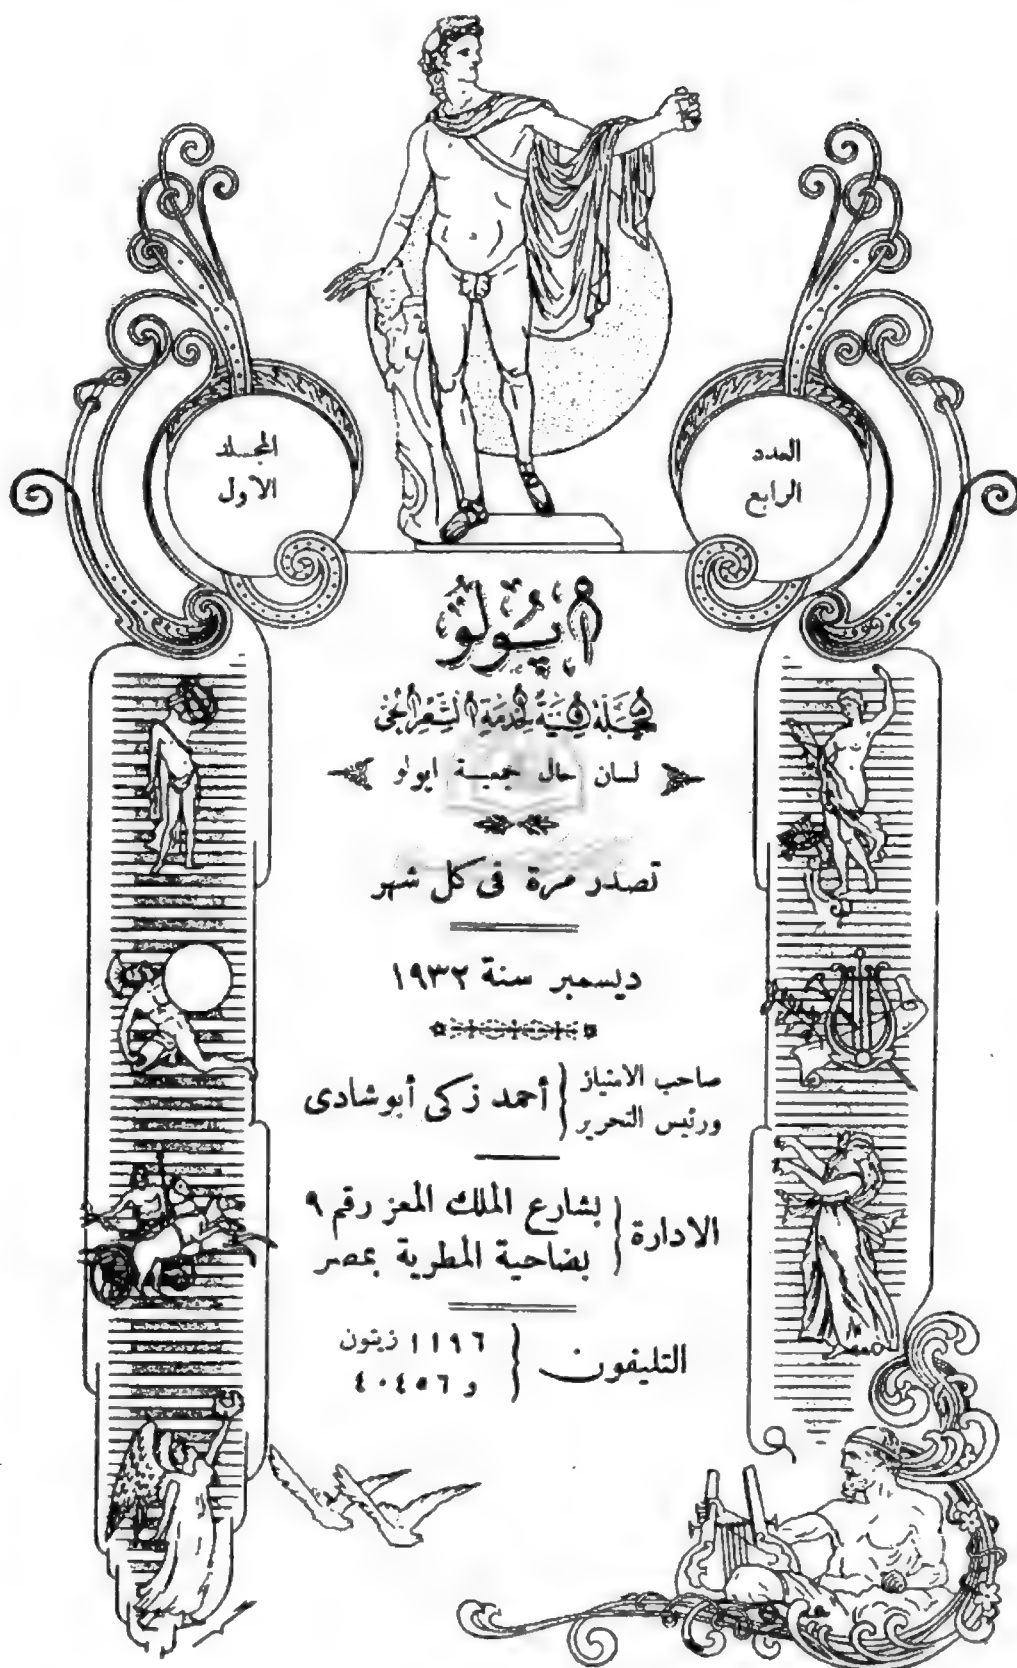 العدد
الرابع
المجلد
الاول
أپولو
مجلة فنية لخدمة الشعر الحي
لسان حال جمعية ابولو
تصدر مرة فى كل شهر
ديسمبر سنة ١٩٣٢
صاحب الامتياز
ورئيس التحرير
أحمد زكى أبوشادى
الادارة
بشارع الملك المعز رقم ٩
بضاحية المطرية بمصر
التليفون
١١٩٦ زيتون
و ٤٠٤٥٦